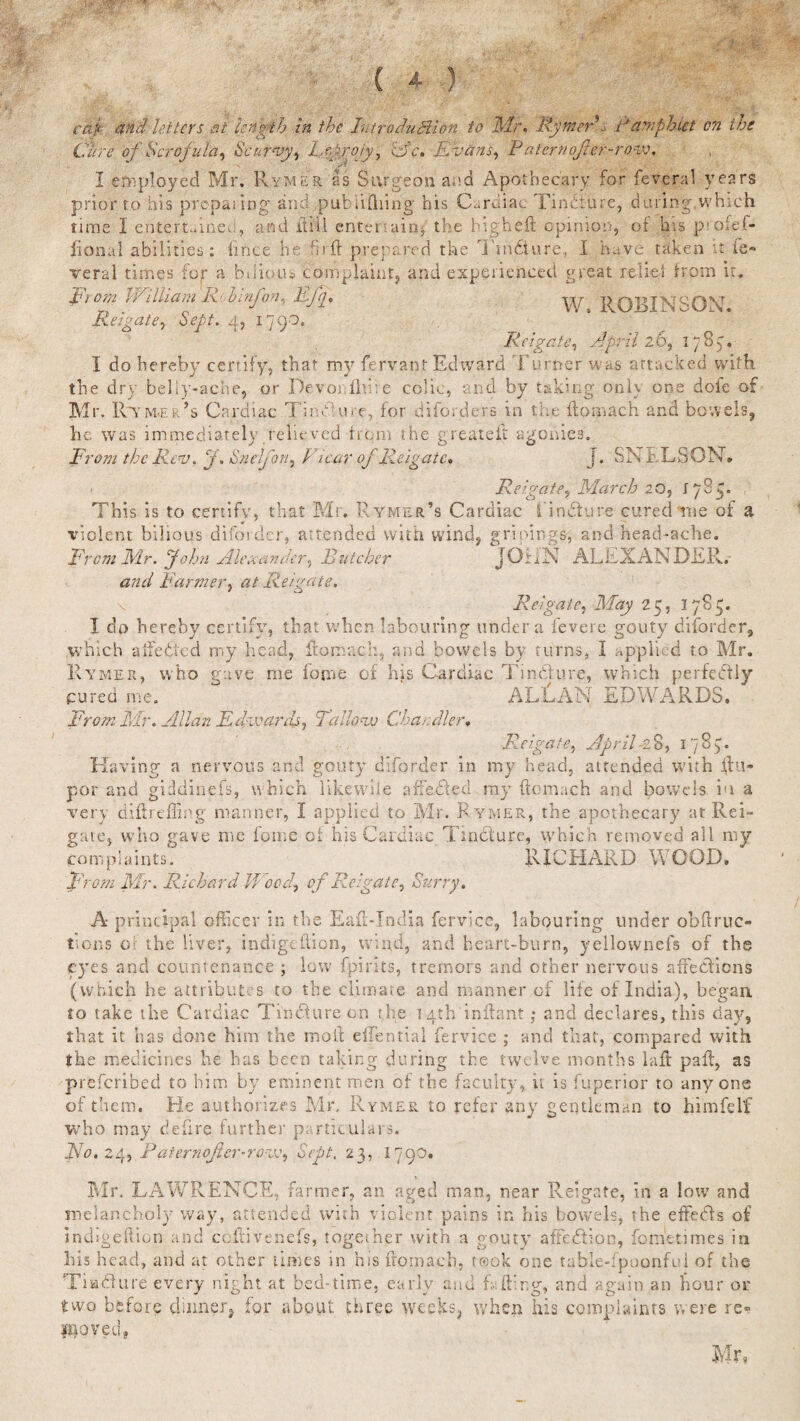 ( 4 )
case and letters at length in the Introduction to Mr. Rymer's Pamphlet on the
Cure of Scrofula, Scurvy, Leprosy, &c. Evans, Paternoster-row.
I employed Mr. Rymer as Surgeon and Apothecary for ſeveral years
prior to his prepairing and publiſhing his Cardiac Tincture, during which
time I entertained, and ſtill entertain, the higheſt opinion, of his profeſ-
ſional abilities: ſince he firſt prepared the Tincture, I have taken it ſe-
veral times for a bilious complaint, and experienced great relief from it.
From William Robinſon, Eſq. W. ROBINSON.
Reigate, Sept. 4, 1790.
Reigate, April 26, 1785.
I do hereby certify, that my ſervant Edward Turner was attacked with
the dry belly-ache, or Devonſhire colic, and by taking only one doſe of
Mr. Rymer's Cardiac Tincture, for diſorders in the ſtomach and bowels,
he was immediately relieved from the greateſt agonies.
From the Rev. J. Snelſon, Vicar of Reigate. J. SNELSON.
Reigate, March 20, 1785.
This is to certify, that Mr. Rymer's Cardiac Tincture cured me of a
violent bilious diſorder, attended with wind, gripings, and head-ache.
From Mr. John Alexander, Butcher JOHN ALEXANDER.
and Farmer, at Reigate.
Reigate, May 25, 1785.
I do hereby certify, that when labouring under a ſevere gouty diſorder,
which affected my head, ſtomach, and bowels by turns, I applied to Mr.
Rymer, who gave me ſome of his Cardiac Tincture, which perfectly
cured me. ALLAN EDWARDS.
From Mr. Allan Edwards, Tallow Chandler.
Reigate, April 28, 1785.
Having a nervous and gouty diſorder in my head, attended with ſtu-
por and giddineſs, which likewiſe affected my ſtomach and bowels in a
very diſtreſſing manner, I applied to Mr. Rymer, the apothecary at Rei-
gate, who gave me ſome of his Cardiac Tincture, which removed all my
complaints. RICHARD WOOD.
From Mr. Richard Wood, of Reigate, Surry.
A principal officer in the Eaſt-India ſervice, labouring under obſtruc-
tions of the liver, indigeſtion, wind, and heart-burn, yellowneſs of the
eyes and countenance; low ſpirits, tremors and other nervous affections
(which he attributes to the climate and manner of life of India), began
to take the Cardiac Tincture on the 14th inſtant; and declares, this day,
that it has done him the moſt eſſential ſervice; and that, compared with
the medicines he has been taking during the twelve months laſt paſt, as
preſcribed to him by eminent men of the faculty, it is ſuperior to any one
of them. He authorizes Mr. Rymer to refer any gentleman to himſelf
who may deſire further particulars.
No. 24, Paternoſter-row, Sept. 23, 1790.
Mr. LAWRENCE, farmer, an aged man, near Reigate, in a low and
melancholy way, attended with violent pains in his bowels, the effects of
indigeſtion and coſtiveneſs, together with a gouty affection, ſometimes in
his head, and at other times in his ſtomach, took one table-ſpoonful of the
Tincture every night at bed-time, early and faſting, and again an hour or
two before dinner, for about three weeks, when his complaints were re-
moved.
Mr.